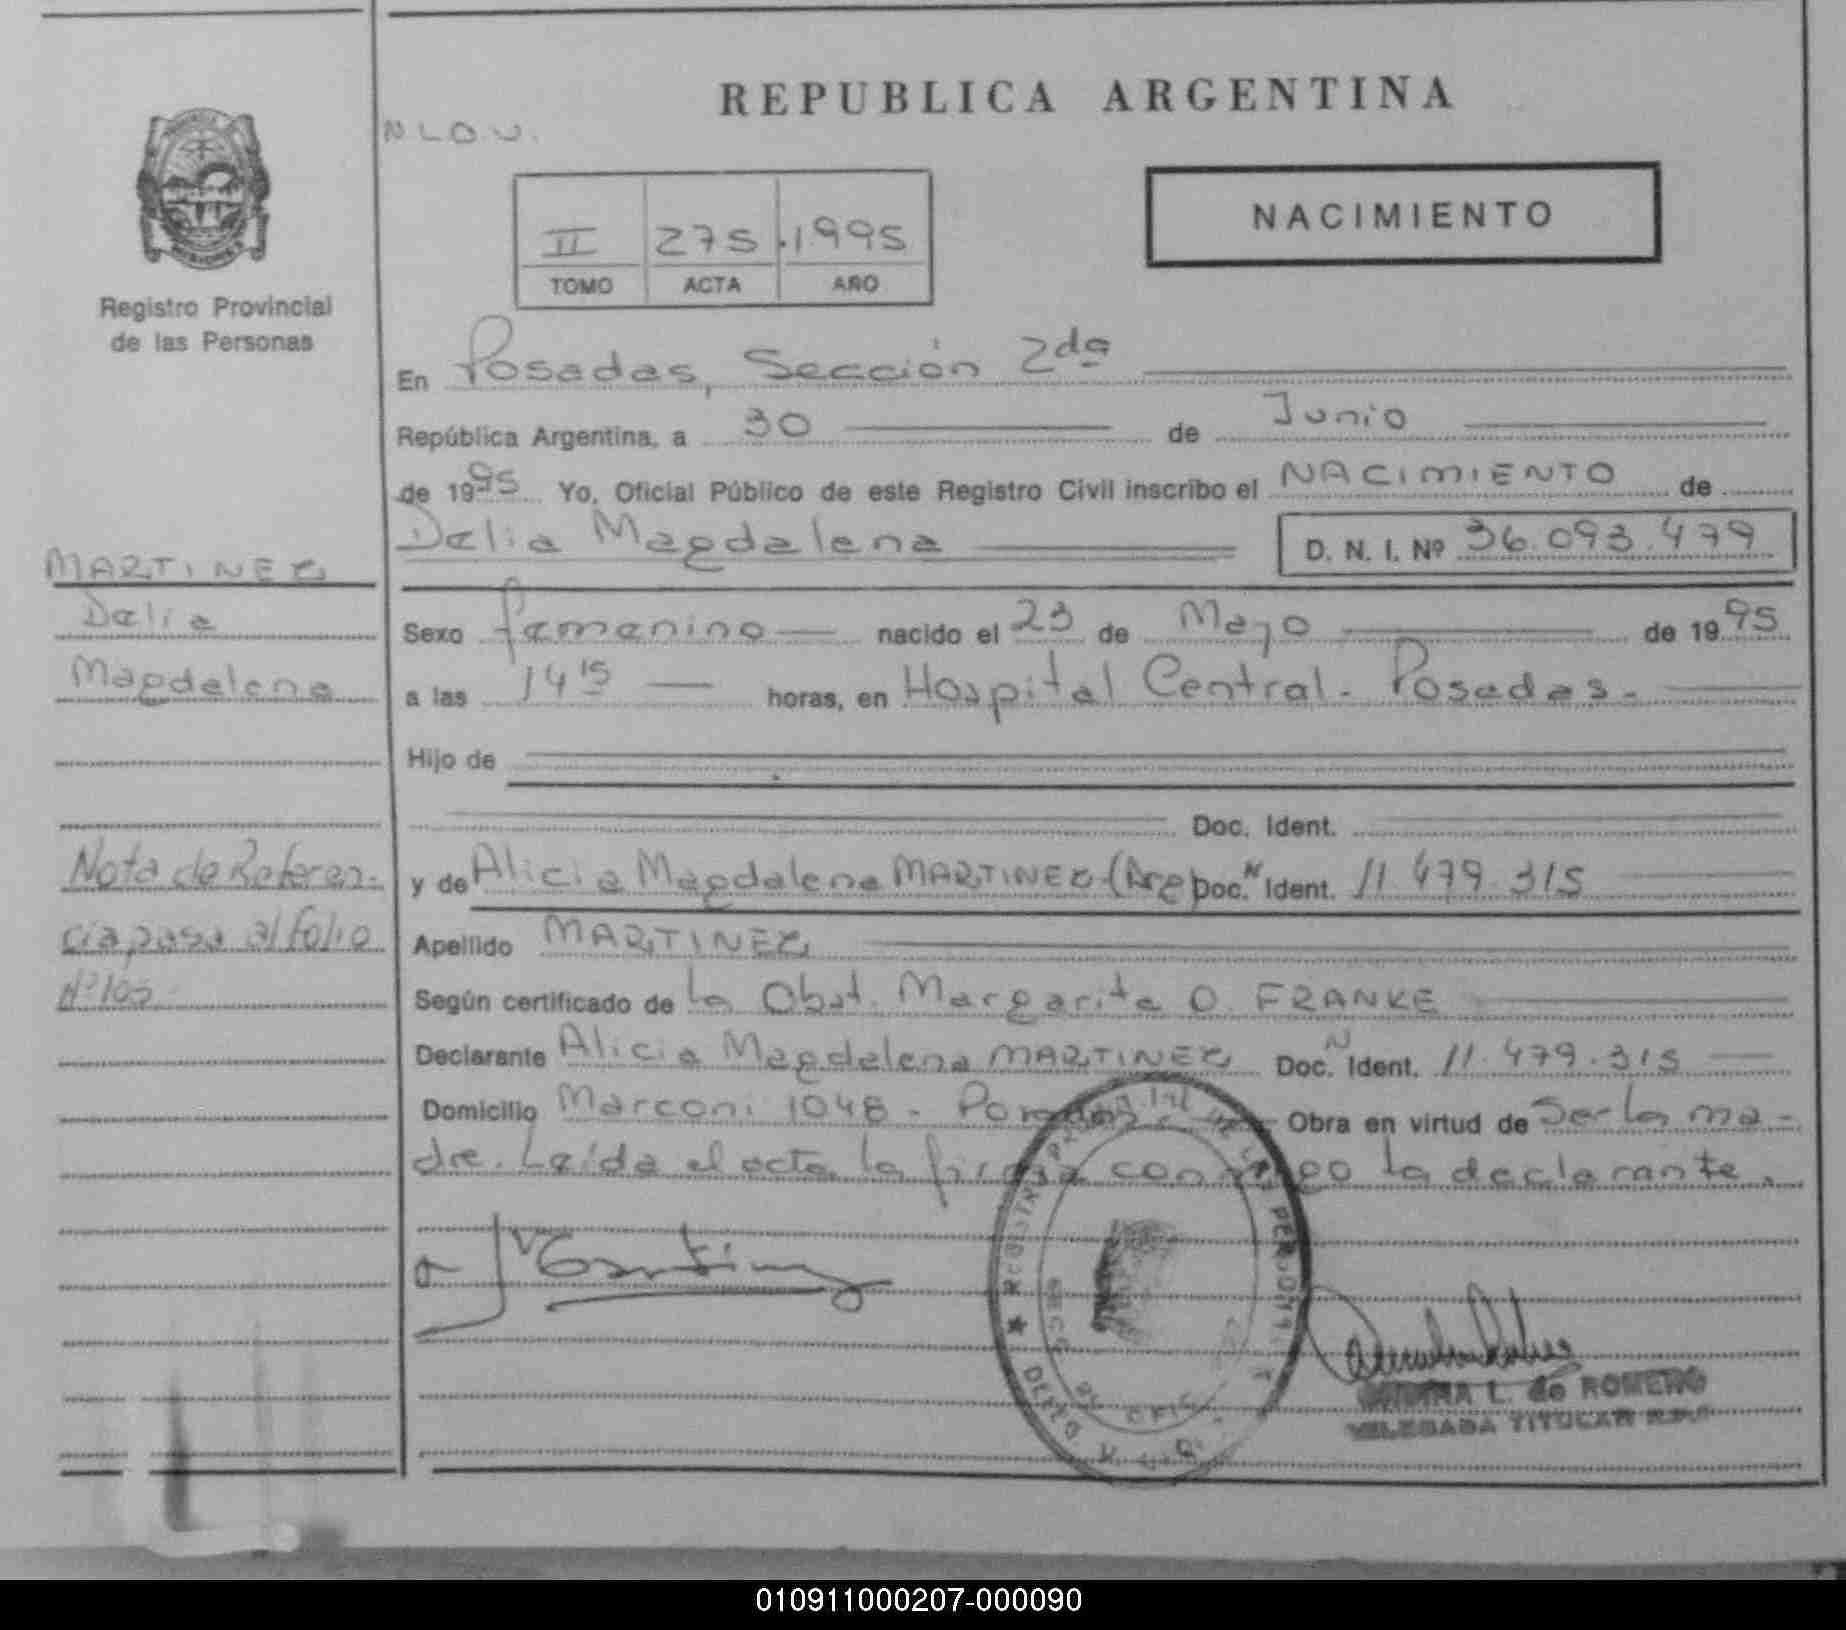 REPUBLICA ARGENTINA
N L O U.
NACIMIENTO
II 275 1995
TOMO ACTA AÑO
Registro Provincial
de las Personas
En Posadas, Sección 2da
República Argentina, a 30 de Junio
de 1995 Yo, Oficial Público de este Registro Civil inscribo el NACIMIENTO de
Delia Magdalena D. N. I. Nº 36.093.479
MARTINEZ
Delia
Magdalena
Sexo femenino nacido el 23 de Mayo de 1995
a las 14 15 horas, en Hospital Central - Posadas -
Hijo de
Doc. Ident.
y de Alicia Magdalena MARTINEZ (Arg) Doc. N Ident. 11.479.315
Nota de Referen-
cia pasa al folio
Nº 103
Apellido MARTINEZ
Según certificado de la Obst. Margarita O. FRANKE
Declarante Alicia Magdalena MARTINEZ Doc. N Ident. 11.479.315
Domicilio Marconi 1048 - Posadas - Obra en virtud de Ser la ma-
dre. Leída el acta la firma conmigo la declarante.
L. de ROMERO
DELEGADA TITULAR R.P.P.
010911000207-000090